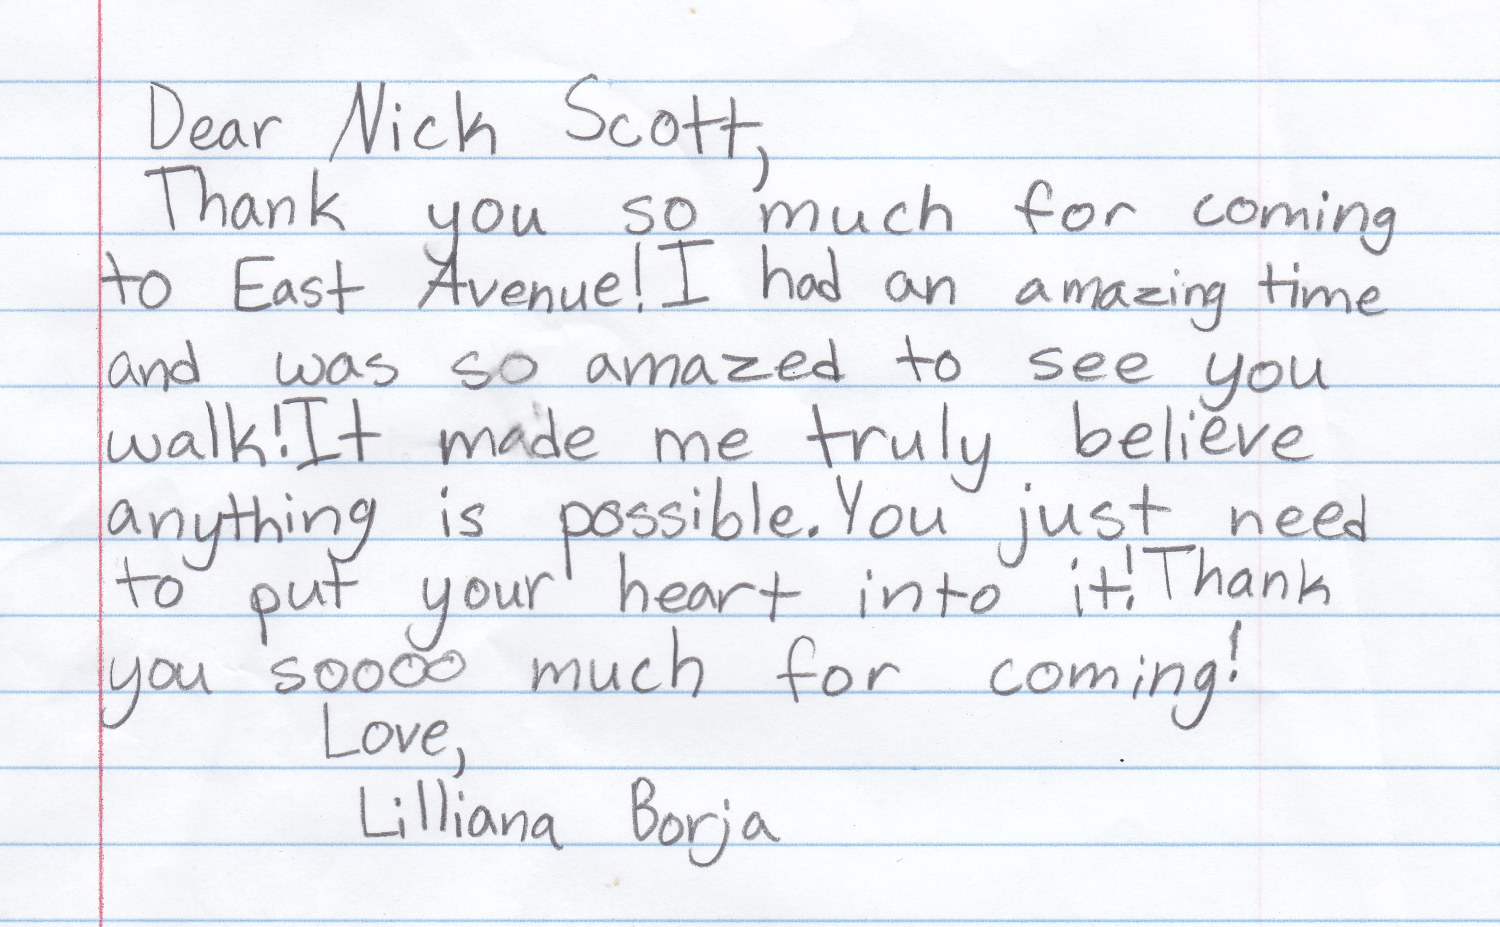 Dear Nick Scott,
Thank you so much for coming
to East Avenue! I had an amazing time
and was so amazed to see you
walk! It made me truly believe
anything is possible. You just need
to put your heart into it! Thank
you soooo much for coming!
Love,
Lilliana Borja